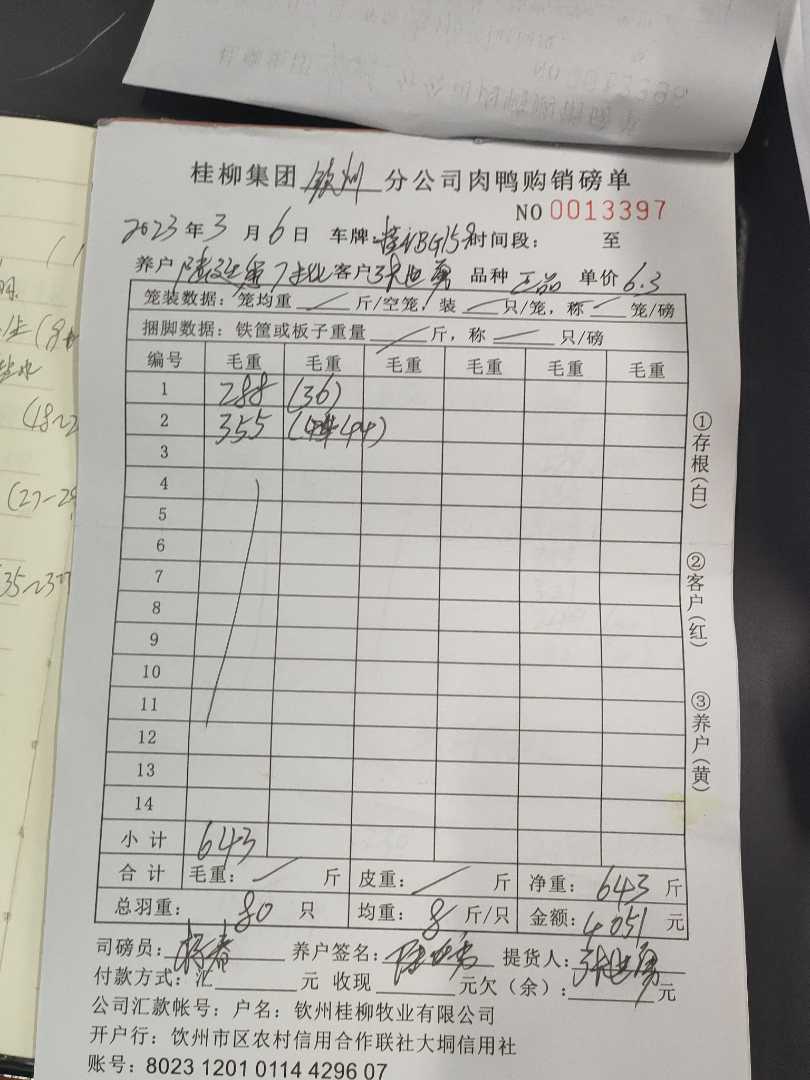 桂柳集团 钦州 分公司肉鸭购销磅单
NO 0013397
2023年3月6日 车牌: 时间段: 至
养户 客户 品种 正品 单价 6.3
笼装数据: 笼均重 斤/空笼, 装 只/笼, 称 笼/磅
捆脚数据: 铁筐或板子重量 斤, 称 只/磅
编号 毛重 毛重 毛重 毛重 毛重 毛重
1 288 (36)
2 355 ( 44)
3
4
5
6
7
8
9
10
11
12
13
14
小计 643
合计 毛重: 斤 皮重: 斤 净重: 643 斤
总羽重: 80 只 均重: 8 斤/只 金额: 4051 元
司磅员: 杨春 养户签名: 提货人:
付款方式: 汇 元 收现 元欠(余): 元
公司汇款帐号: 户名: 钦州桂柳牧业有限公司
开户行: 钦州市区农村信用合作联社大垌信用社
账号: 8023 1201 0114 4296 07
①存根(白)
②客户(红)
③养户(黄)
(18~22
(27-28
35~37